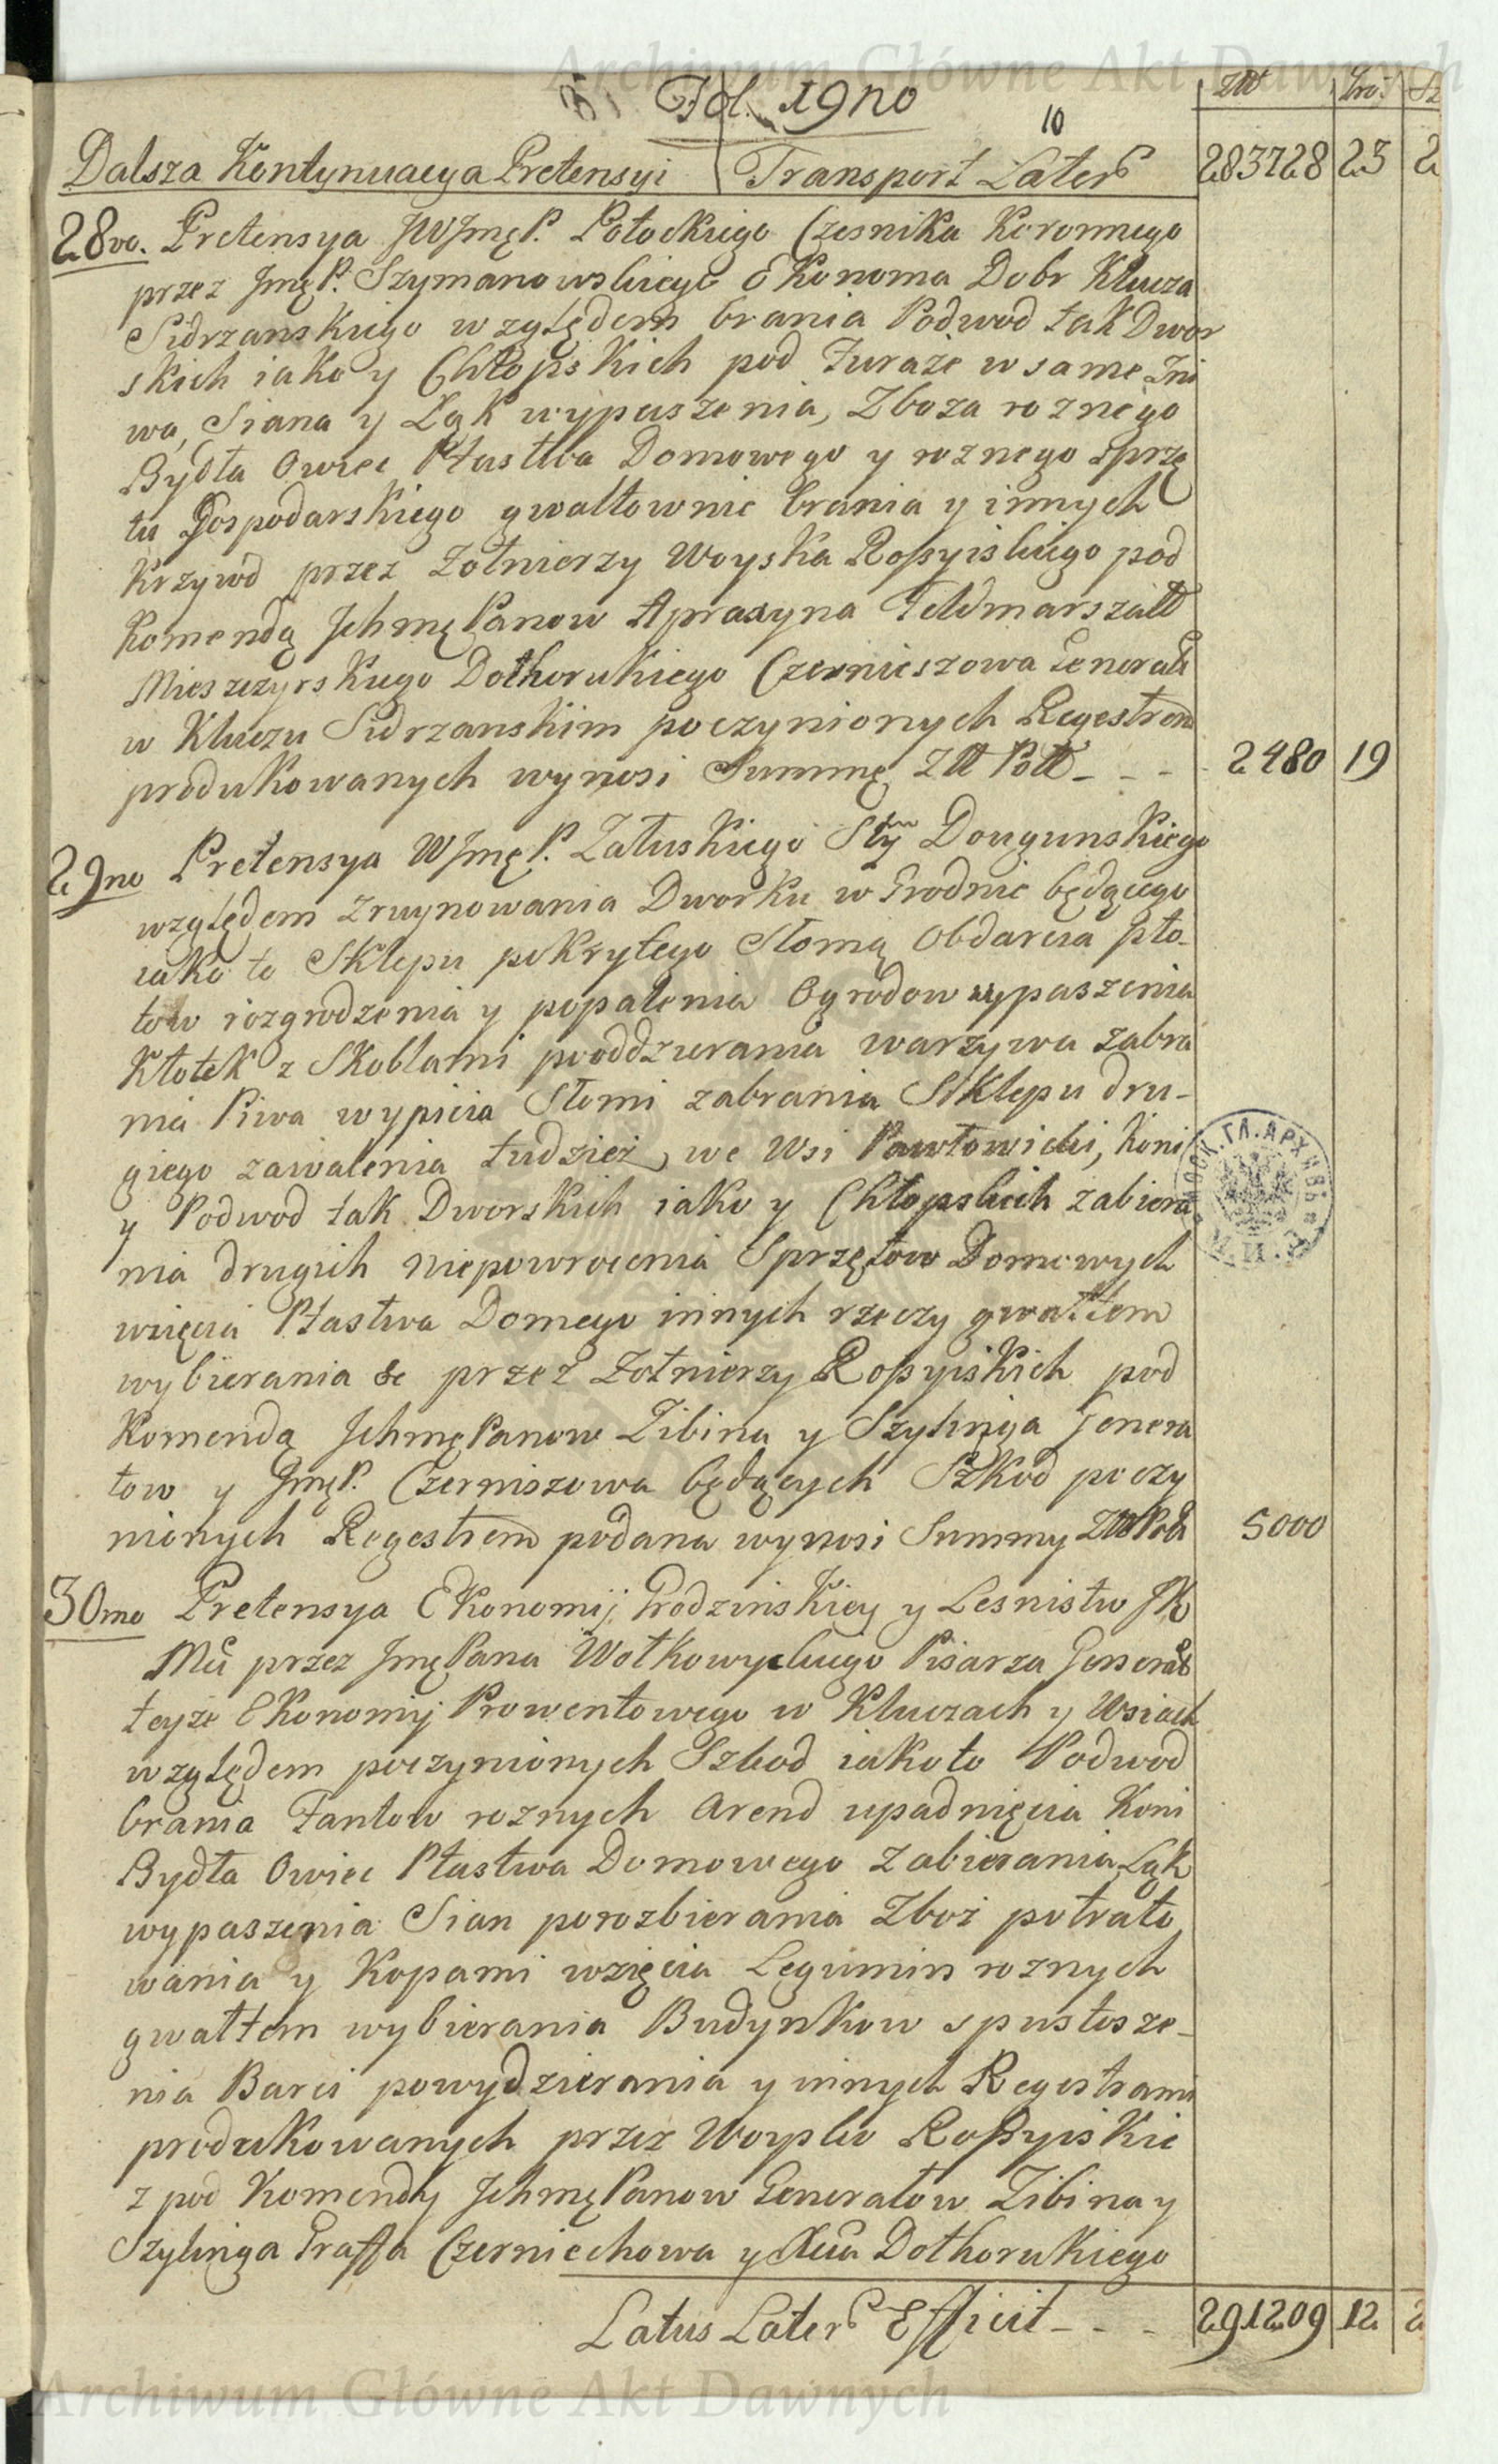 Archiwum Główne Akt Dawnych
Fol. 19no
10
Złł Gro: Sz
Dalsza Kontynuacya Pretensyi Transport Lateris 283728 23 2
28vo. Pretensya JWJmęP. Potockiego Czesnika Koronnego
przez JmęP. Szymanowskiego Ekonoma Dobr Klucza
Sidrzanskiego względem brania Podwod tak Dwor
skich iako y Chłopskich pod Furaże w same Żni
wa, Siana y Łąk wypaszenia, Zboza roznego
Bydła Owiec Ptastwa Domowego y roznego sprzę
tu Gospodarskiego gwałtownie brania y innych
Krzywd przez Zołnierzy Woyska Rossyiskiego pod
Komendą JchmęPanow Apraxyna Feldmarszałł
Mieszczyrskiego Dołhorukiego Czernieszowa Generałł
w Kluczu Sidrzanskim poczynionych Regestrem
produkowanych wynosi Summę Złł Poll - - - 2480 19
29no Pretensya WJmęP. Załuskiego Stty Dougunskiego
względem zruynowania Dworku w Grodnie będącego
iako to Sklepu pokrytego Słomą Obdarcia pło-
tow rozgrodzenia y popalenia Ogrodow wypaszenia
Kłotek z Skoblami pooddzierania warzywa zabra
nia Piwa wypicia Słomi zabrania Sklepu dru-
giego zawalenia tudzież, we Wsi Pawłowicki, Koni
y Podwod tak Dworskich iako y Chłopskich zabiera
nia drugich niepowrocenia Sprzętow Domowych
wzięcia Ptastwa Domego innych rzeczy gwałtem
wybierania &c przez Zołnierzy Rossyiskich pod
Komendą JchmęPanow Libina y Szylinga Jenera
łow y JmęP. Czerniszowa będących Szkod poczy
nionych Regestrem podana wynosi Summy Złł Poll 5000
30mo Pretensya Ekonomij Grodzinskiey y Lesnistw JK
Mci przez JmęPana Wołkowyckiego Pisarza Generał
teyże Ekonomij Prowentowego w Kluczach y Wsiach
względem poczynionych Szkod iako to Podwod
brania Fantow roznych Arend upadnięcia Koni
Bydła Owiec Ptastwa Domowego zabierania Łąk
wypaszenia Sian porozbierania Zboż potrato
wania y Kopami wzięcia Legumin roznych
gwałtem wybierania Budynkow spustosze-
nia Barci powydzierania y innych Regestrami
produkowanych przez Woysko Rossyiskie
z pod Komendy JchmęPanow Generałow Libina y
Szylinga Graffa Czerniechowa y Xcia Dołhorukiego
Latus Lateris Efficit - - - 291209 12 2
МОСК.ГЛ.АРХИВЪ М.И.Д.
Archiwum Główne Akt Dawnych